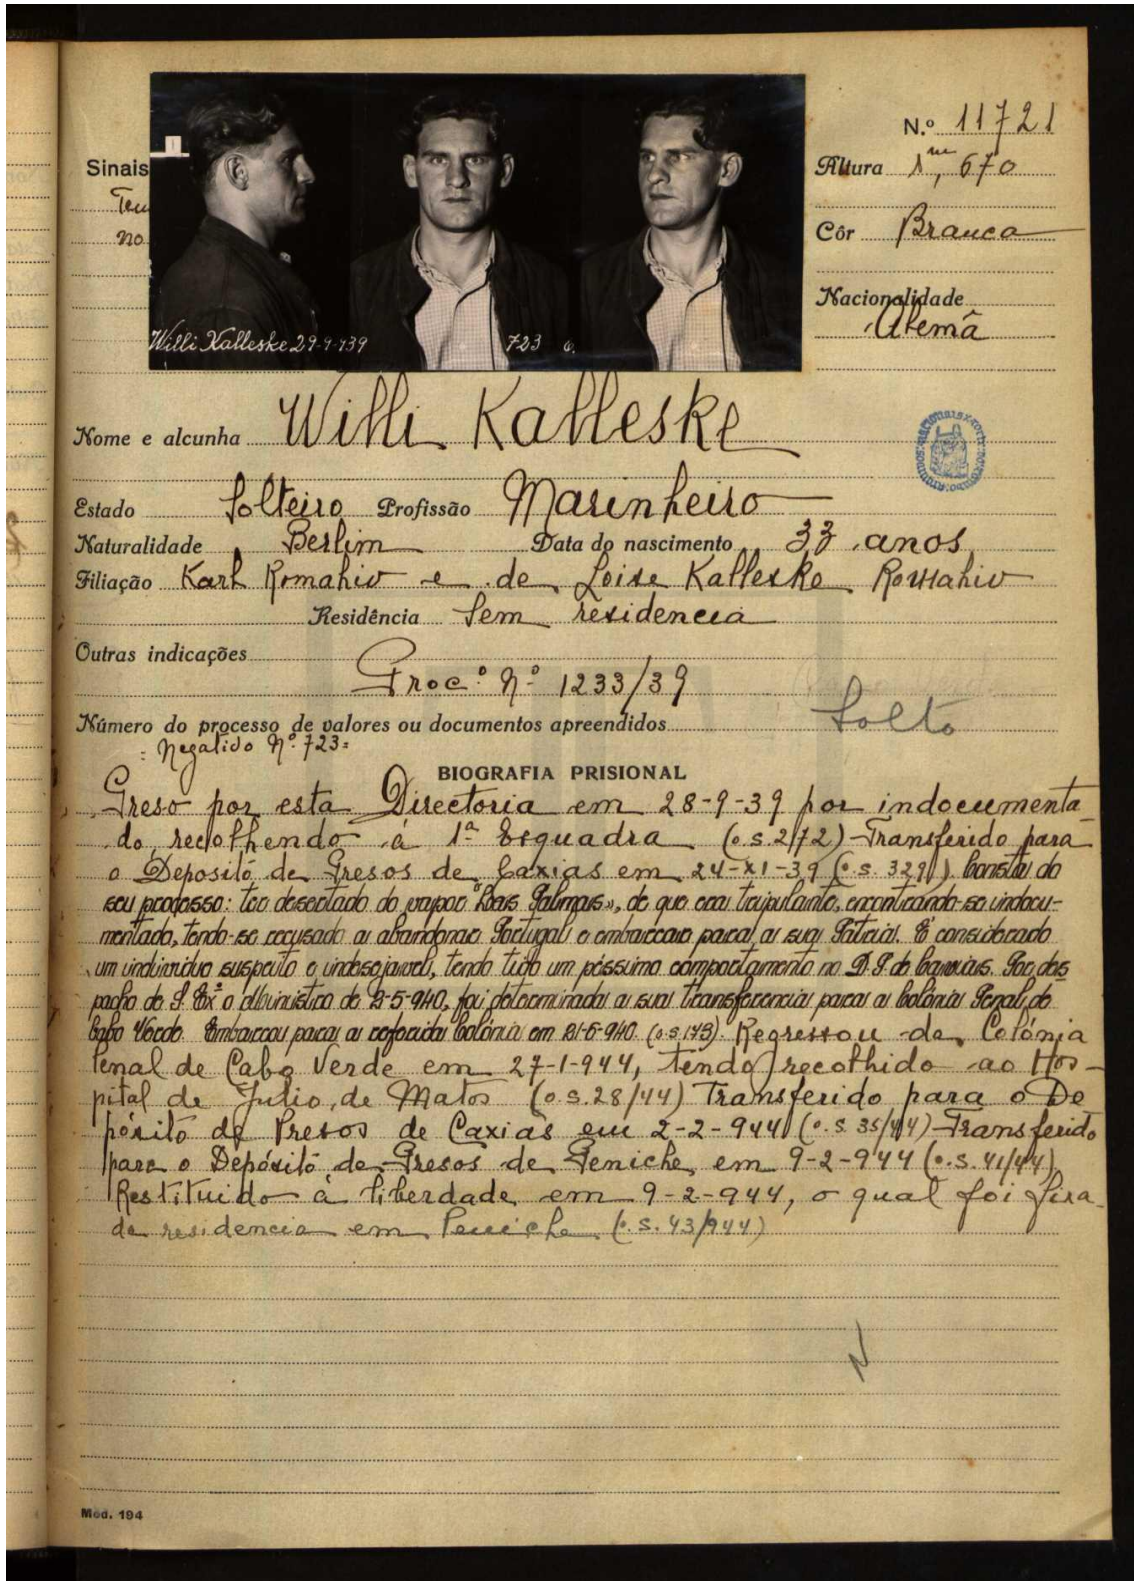 N.º 11721
Sinais
Altura 1m,670
Teu
no
Côr Branca
Nacionalidade
Alemã
Willi Kalleske 29-9-939
723
Nome e alcunha Willi Kalleske
Estado Solteiro Profissão Marinheiro
Naturalidade Berlim Data do nascimento 33 anos
Filiação Karl Romahiv e de Loise Kalleske Romahiv
Residência Sem residencia
Outras indicações
Proc.º N.º 1233/39
Número do processo de valores ou documentos apreendidos Solto
= Negativo N.º 723=
BIOGRAFIA PRISIONAL
Preso por esta Directoria em 28-9-39 por indocumenta-
do, recolhendo á 1ª Esquadra (o.s.272) - Transferido para
o Deposito de Presos de Caxias em 24-XI-39 (o.s. 329). Consta do
seu processo: ter desertado do vapor, de que era tripulante, encontrando-se indocu-
mentado, tendo-se recusado a abandonar Portugal e embarcar para a sua Patria. É considerado
um individuo suspeito e indesejavel, tendo tido um péssimo comportamento no D. P. de Caxias. Por des-
pacho de S. Exª o Ministro de -5-940, foi determinada a sua transferencia para a Colónia Penal de
Cabo Verde. Embarcou para a referida Colónia em 21-6-940. (o.s.173). Regressou da Colónia
Penal de Cabo Verde em 27-1-944, tendo recolhido ao Hos-
pital de Julio de Matos (o.s.28/44) Transferido para o De
pósito de Presos de Caxias em 2-2-944 (o.s. 35/44) - Transferido
para o Depósito de Presos de Peniche, em 9-2-944 (o.s. 41/44)
Restituido à liberdade em 9-2-944, o qual foi fixa-
da residencia em Peniche (o.s. 43/944)
Mod. 194